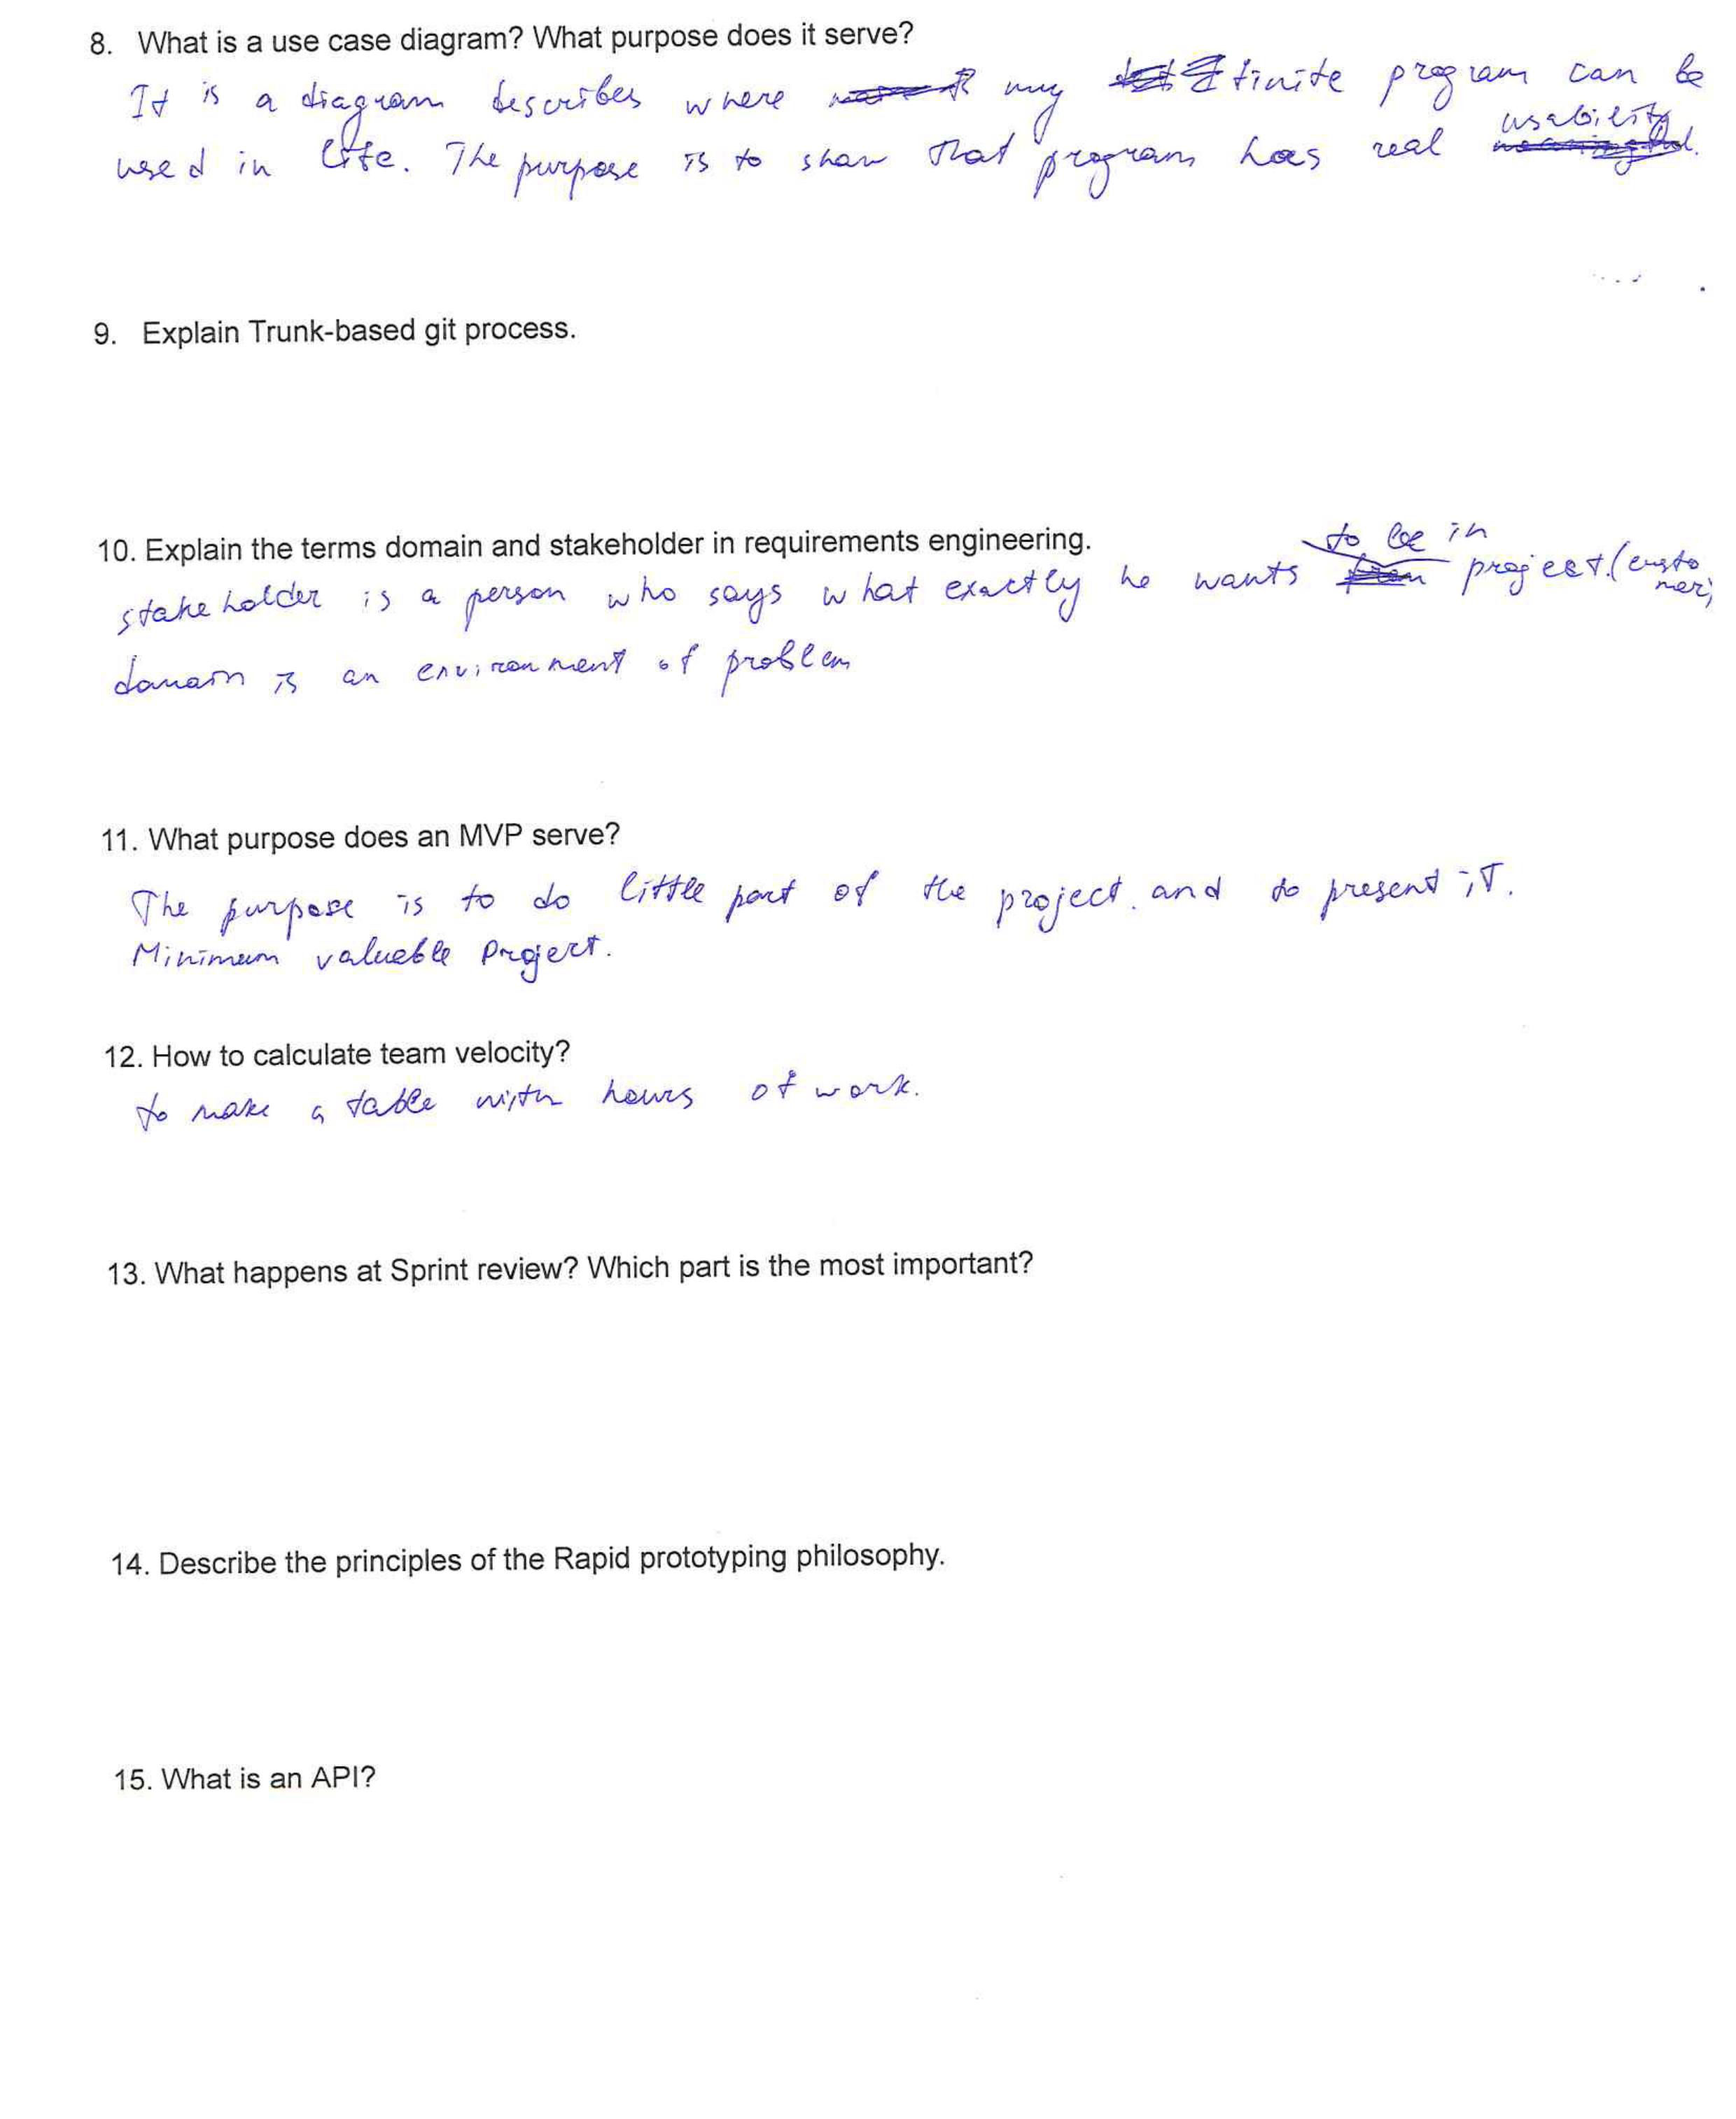 8. What is a use case diagram? What purpose does it serve?
It is a diagram describes where my finite program can be
used in life. The purpose is to show that program has real usability.
9. Explain Trunk-based git process.
10. Explain the terms domain and stakeholder in requirements engineering.
stakeholder is a person who says what exactly he wants to be in project. (customer)
domain is an environment of problem
11. What purpose does an MVP serve?
The purpose is to do little part of the project. and to present it.
Minimum valueble Project.
12. How to calculate team velocity?
to make a table with hours of work.
13. What happens at Sprint review? Which part is the most important?
14. Describe the principles of the Rapid prototyping philosophy.
15. What is an API?